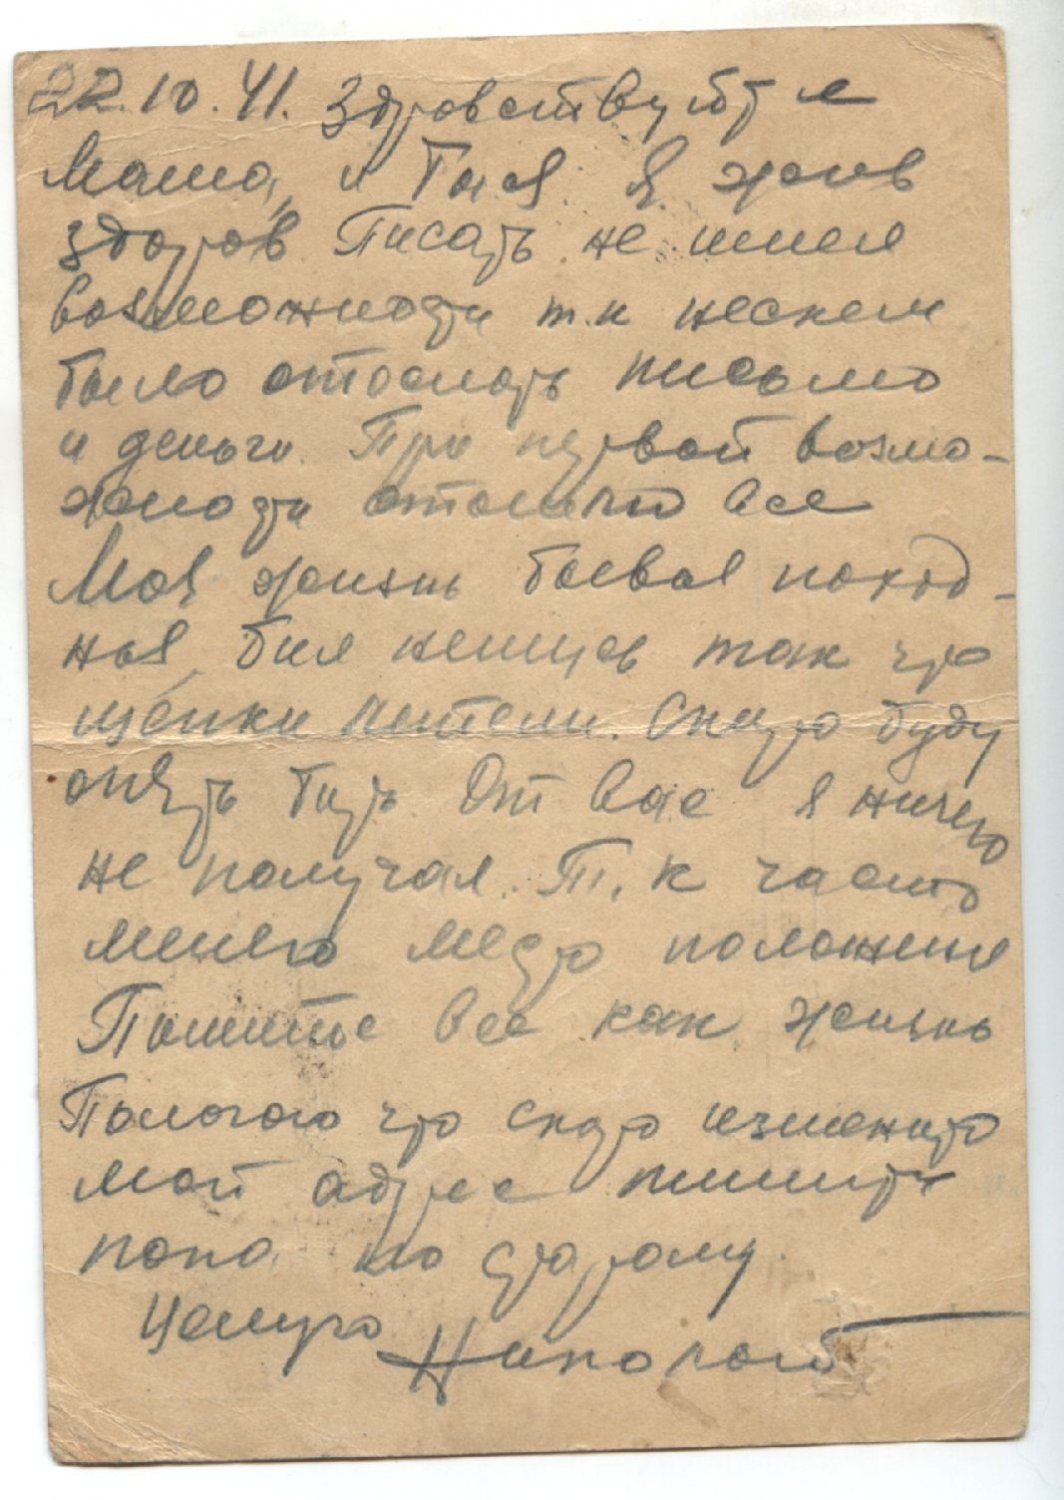 22.10.41. Здравствуйте
Маша, и Тася. Я жив
здоров. Писать не имел
возможности т.к нескем
было отослать письмо
и деньги. При первой возмо-
жности отошлю все
Моя жизнь боевая поход-
ная, бил немцев так что
щепки летели. Скоро буду
опять бить От вас я ничего
не получал. Т. к часто
меняю место положения
Пишите все как жизнь
Полагаю что скоро изменится
мой адрес пишите
пока по старому.
Целую Николай